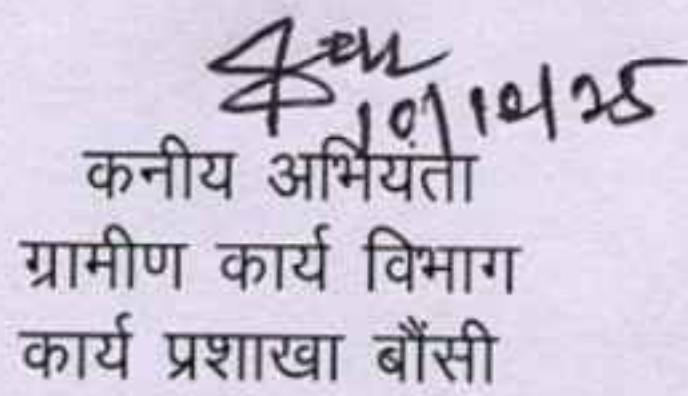 10/10/25
कनीय अभियंता
ग्रामीण कार्य विभाग
कार्य प्रशाखा बौंसी